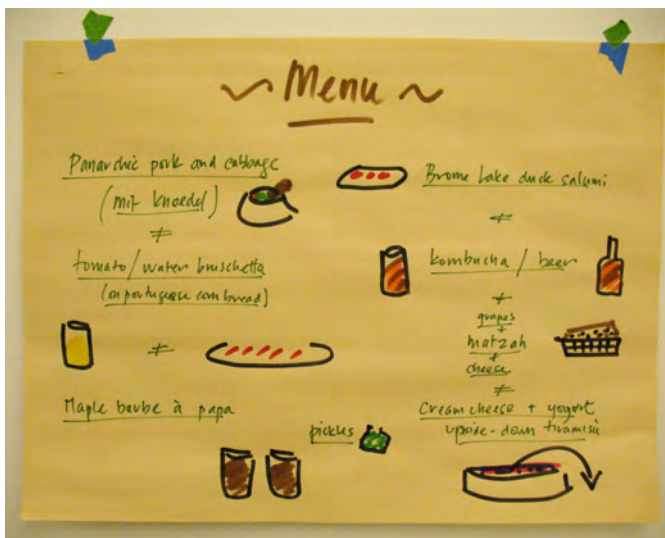 ~ Menu ~
Panarchic pork and cabbage
(mit knoedel)
≠
tomato/water bruschetta
(on portuguese corn bread)
≠
Maple barbe à papa
pickles
Brome Lake duck salumi
≠
kombucha / beer
≠
grapes
+
matzah
+
cheese
≠
Cream cheese + yogurt
upside-down tiramisù